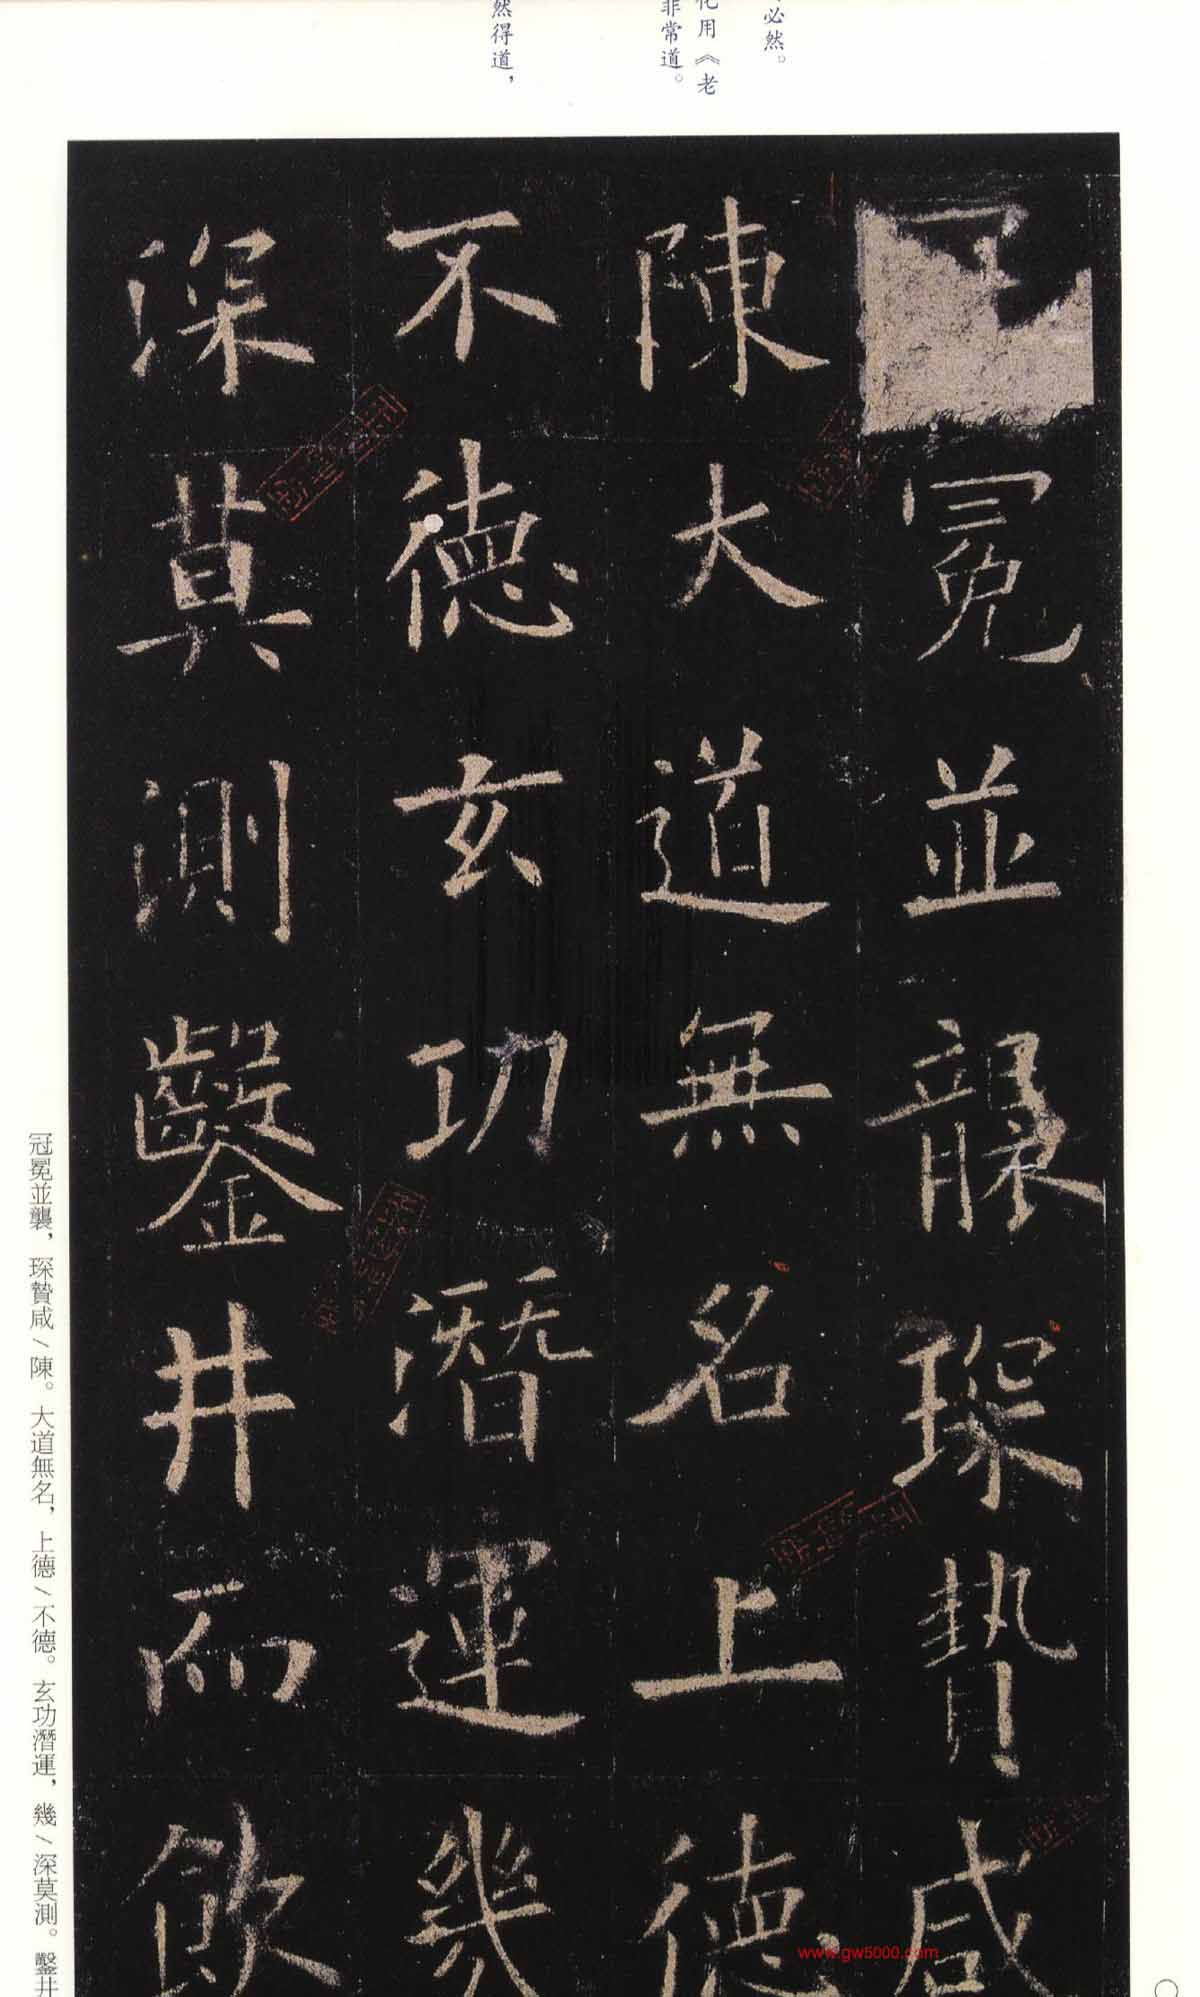 必然。
化用《老
非常道。
然得道，
冕並襲琛贄咸
陳大道無名上德
不德玄功潛運幾
深莫測鑿井而飲
冠冕並襲，琛贄咸／陳。大道無名，上德／不德。玄功潛運，幾／深莫測。鑿井
www.gw5000.com